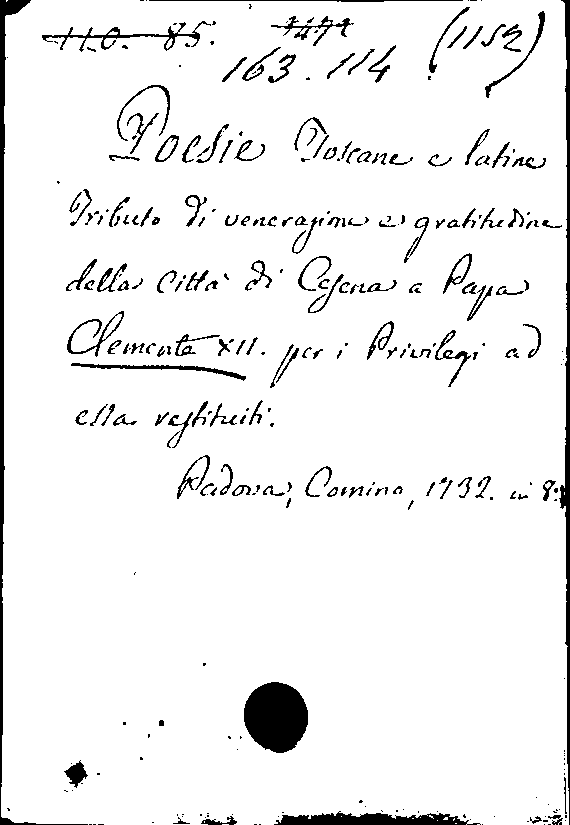 110. 85. 1471 (1152)
163.114.
Poesie Toscane e latine
Tributo di venerazione e gratitudine
della città di Cesena a Papa
Clemente XII. per i Privilegi ad
essa restituiti.
Padova, Comino, 1732. in 8: